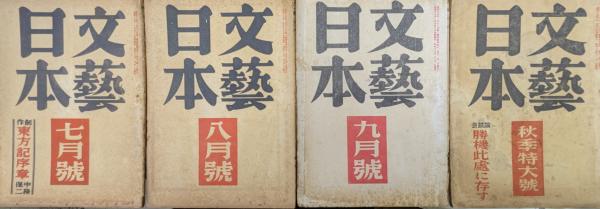 文藝
日本
七月號
創作
東方記序章
文藝
日本
八月號
文藝
日本
九月號
文藝
日本
秋季特大號
勝機此處に存す